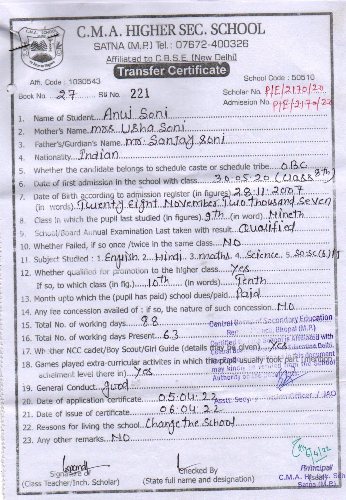 C.M.A. HIGHER SEC. SCHOOL
SATNA (M.P.) Tel: 07672-400326
Affiliated to C.B.S.E. (New Delhi)
Transfer Certificate
Aff. Code : 1030543 School Code : 50510
Book No. 27 Sl. No. 221 Scholar No. P/E/2170/20
Admission No. P/E/2170/22
1. Name of Student. Anuj Soni
2. Mother's Name. mrs Usha Soni
3. Father's/Gurdian's Name. mr. Sanjay Soni
4. Nationality. Indian
5. Whether the candidate belongs to schedule caste or schedule tribe. OBC
6. Date of first admission in the school with class. 30.05.20 (Class 8th)
7. Date of Birth according to admission register (in figures) 28.11.2007
(in words) Twenty Eight November Two thousand Seven
8. Class in which the pupil last studied (in figures) 9th (in word) Nineth
9. School/Board Annual Examination Last taken with result. Qualified
10. Whether Failed, if so once /twice in the same class. NO
11. Subject Studied : 1. English 2. Hindi 3. maths 4. Science 5. So.Sc
12. Whether qualified for promotion to the higher class. Yes
If so, to which class (in fig.) 10th (In words) Tenth
13. Month upto which the (pupil has paid) school dues/paid. Paid
14. Any fee concession availed of : if so, the nature of such concession. NO
15. Total No. of working days. 88
16. Total No. of working days Present. 63
17. Whether NCC cadet/Boy Scout/Girl Guide (details may be given) Yes
18. Games played extra-curricular activites in which the pupil usually took part (mention
achetment level there in). Yes
19. General Conduct. good
20. Date of application certificate. 05.04.22
21. Date of issue of certificate. 06.04.22
22. Reasons for living the school. Change the School
23. Any other remarks. NO
Central Board of Secondary Education
Bhopal (M.P.)
6/4/22
Signature of
(Class Teacher/Inch. Scholar)
Checked By
(State full name and designation)
Principal
C.M.A. H. Sec. School
Satna (M.P.)